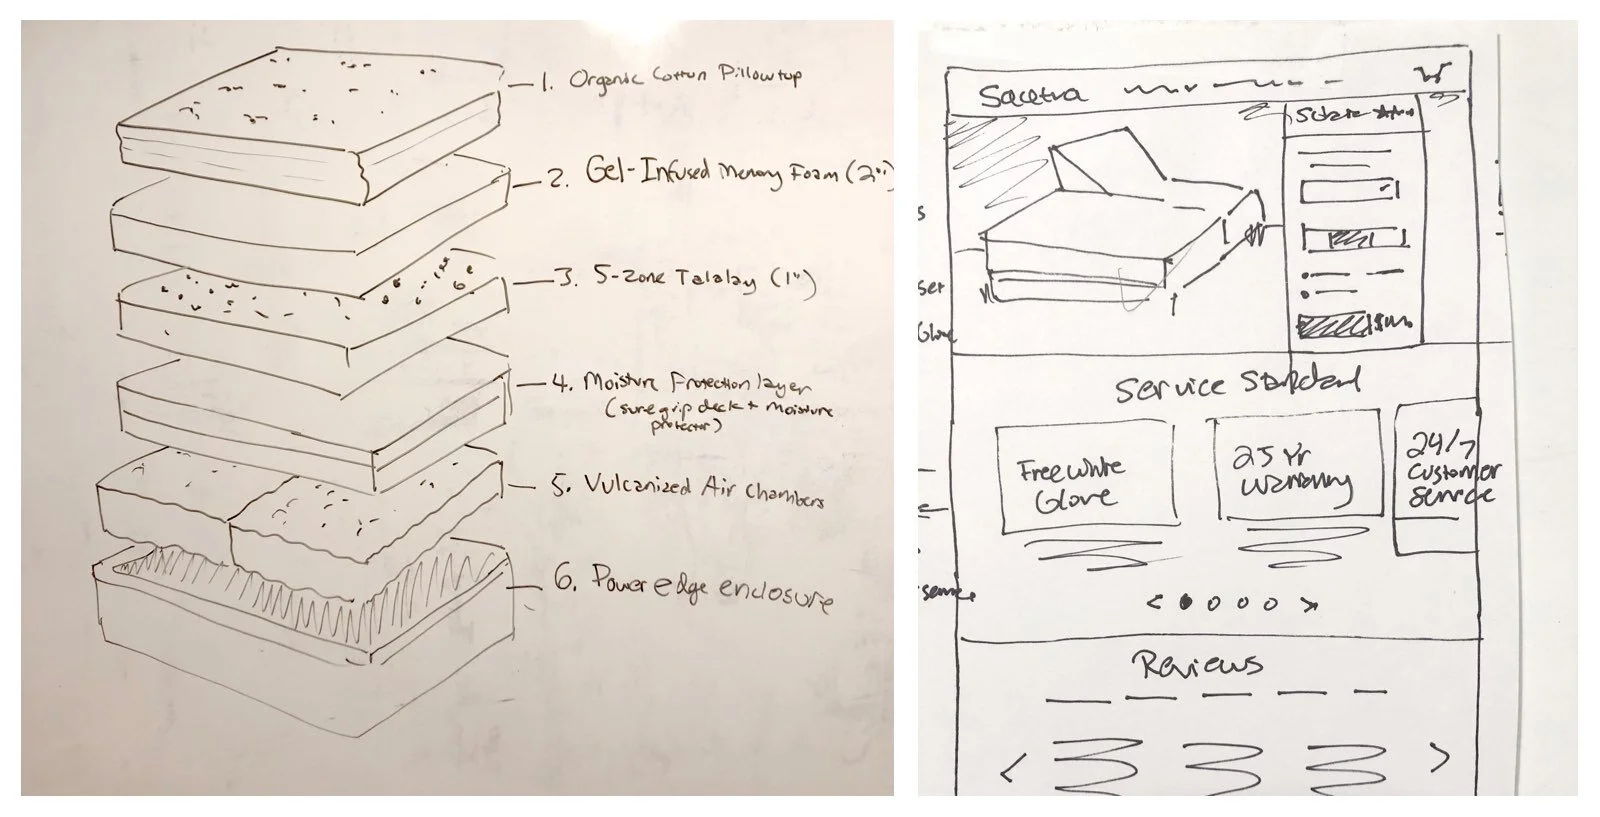 1. Organic Cotton Pillowtop
2. Gel-Infused Memory Foam (2")
3. 5-Zone Talalay (1")
4. Moisture Protection layer
(sure grip deck + Moisture
protector)
5. Vulcanized Air Chambers
6. Power edge enclosure
Saatva
Service Standard
Free White
Glove
25 Yr
Warranty
24/7
Customer
Service
< >
Reviews
< >